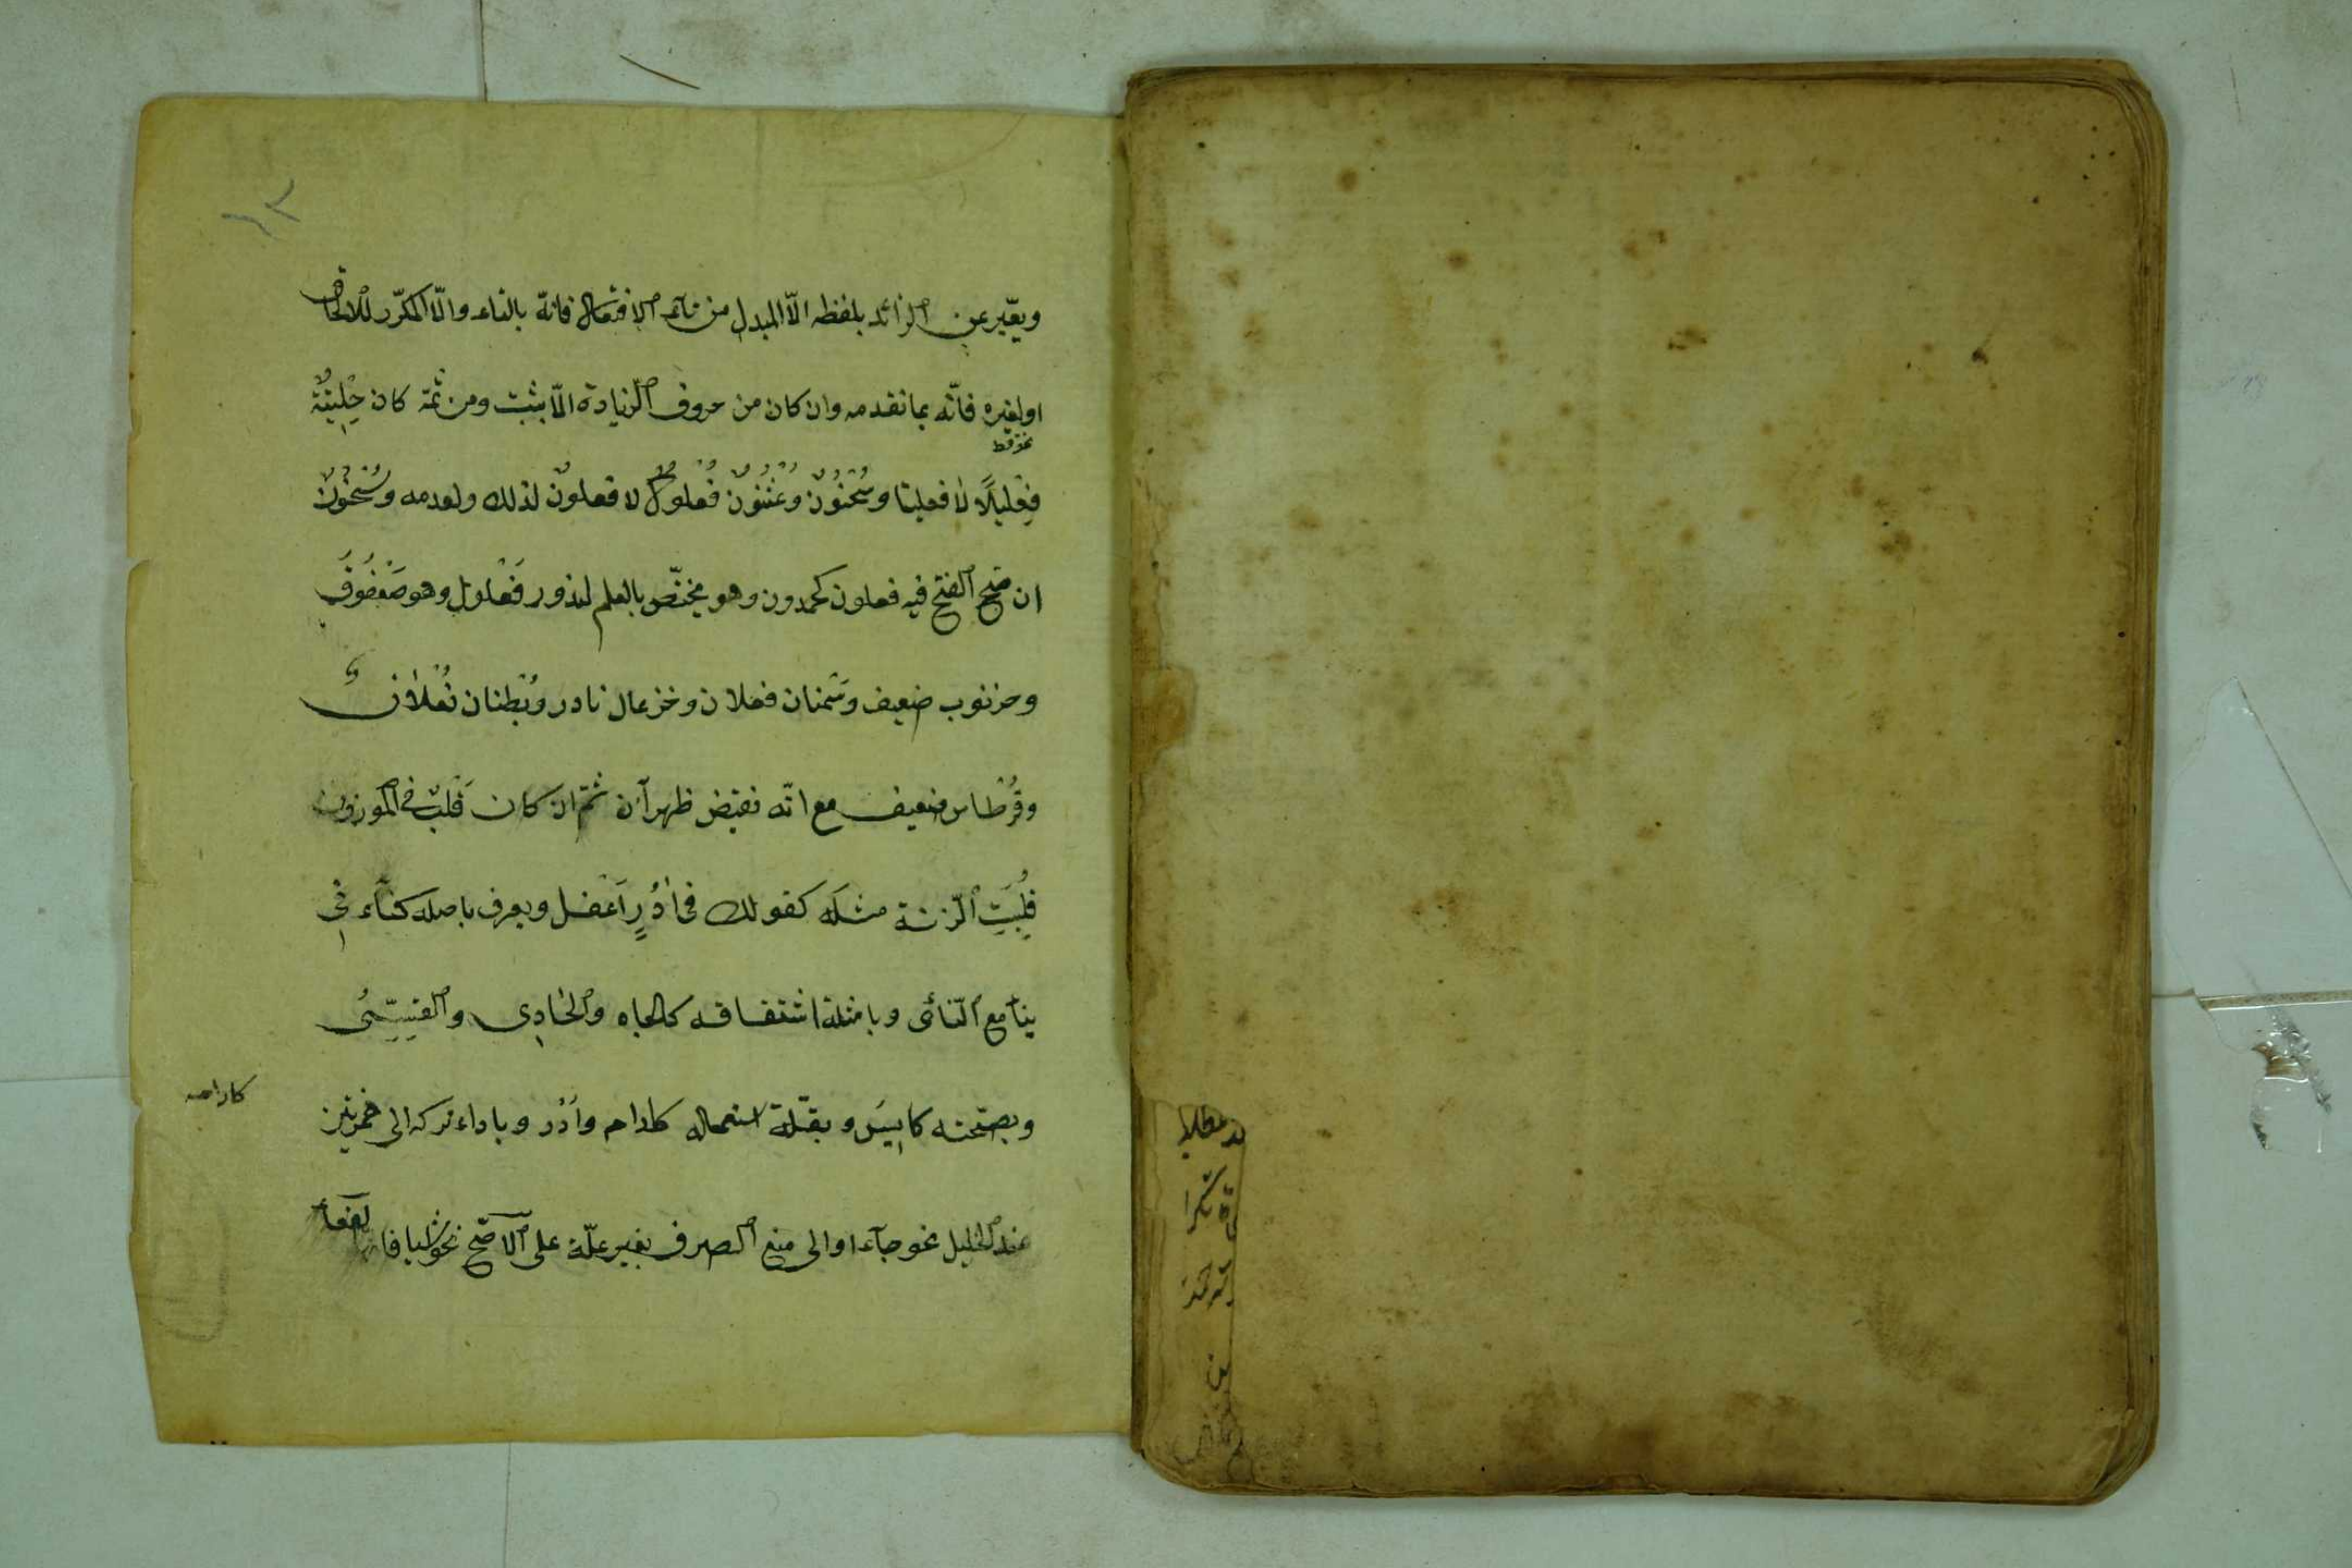 ويعبّر عن الزائد بلفظه الّا المبدل من تاء الافتعال فانّه بالتاء والّا المكرّر للالحاق
او لغيره فانّه بما تقدمه وان كان من حروف الزيادة الّا بثبت ومن ثمّة كان حِلْتِيتٌ
فِعْليلًا لا فعليتا وسُحْنُونٌ وعُثْنُونٌ فُعْلولٌ لا فعلونٌ لذلك ولعدمه وسُحْنُونٌ
ان صحّ الفتح فيه فعلون كحمدون وهو مختصّ بالعلم لندور فَعْلول وهو صَعْفُوقَ
وخرنوب ضعيف وسَمنان فعلان وخزعال نادر وبُطنان فُعْلانٌ
وقُرْطاس ضعيف مع انّه نقيض ظهرآن ثمّ ان كان قَلبٌ في الموزون
قُلِبَتِ الزّنة مثلَه كقولك في اٰدُرٍ اَعْفل ويعرف باصله كناءَ في
ينآ مع النّائى وبامثلة اشتقاقه كالجاه والحادِي والقِسِيّ
وبصحّته كايِسَ وبقلّة استعماله كاٰرام واٰدُر وباداء تركه الى همزتين
عند الخليل نحو جآء او الى منع الصرف بغير علّة على الاصّح نحو اشيا فا لفعا